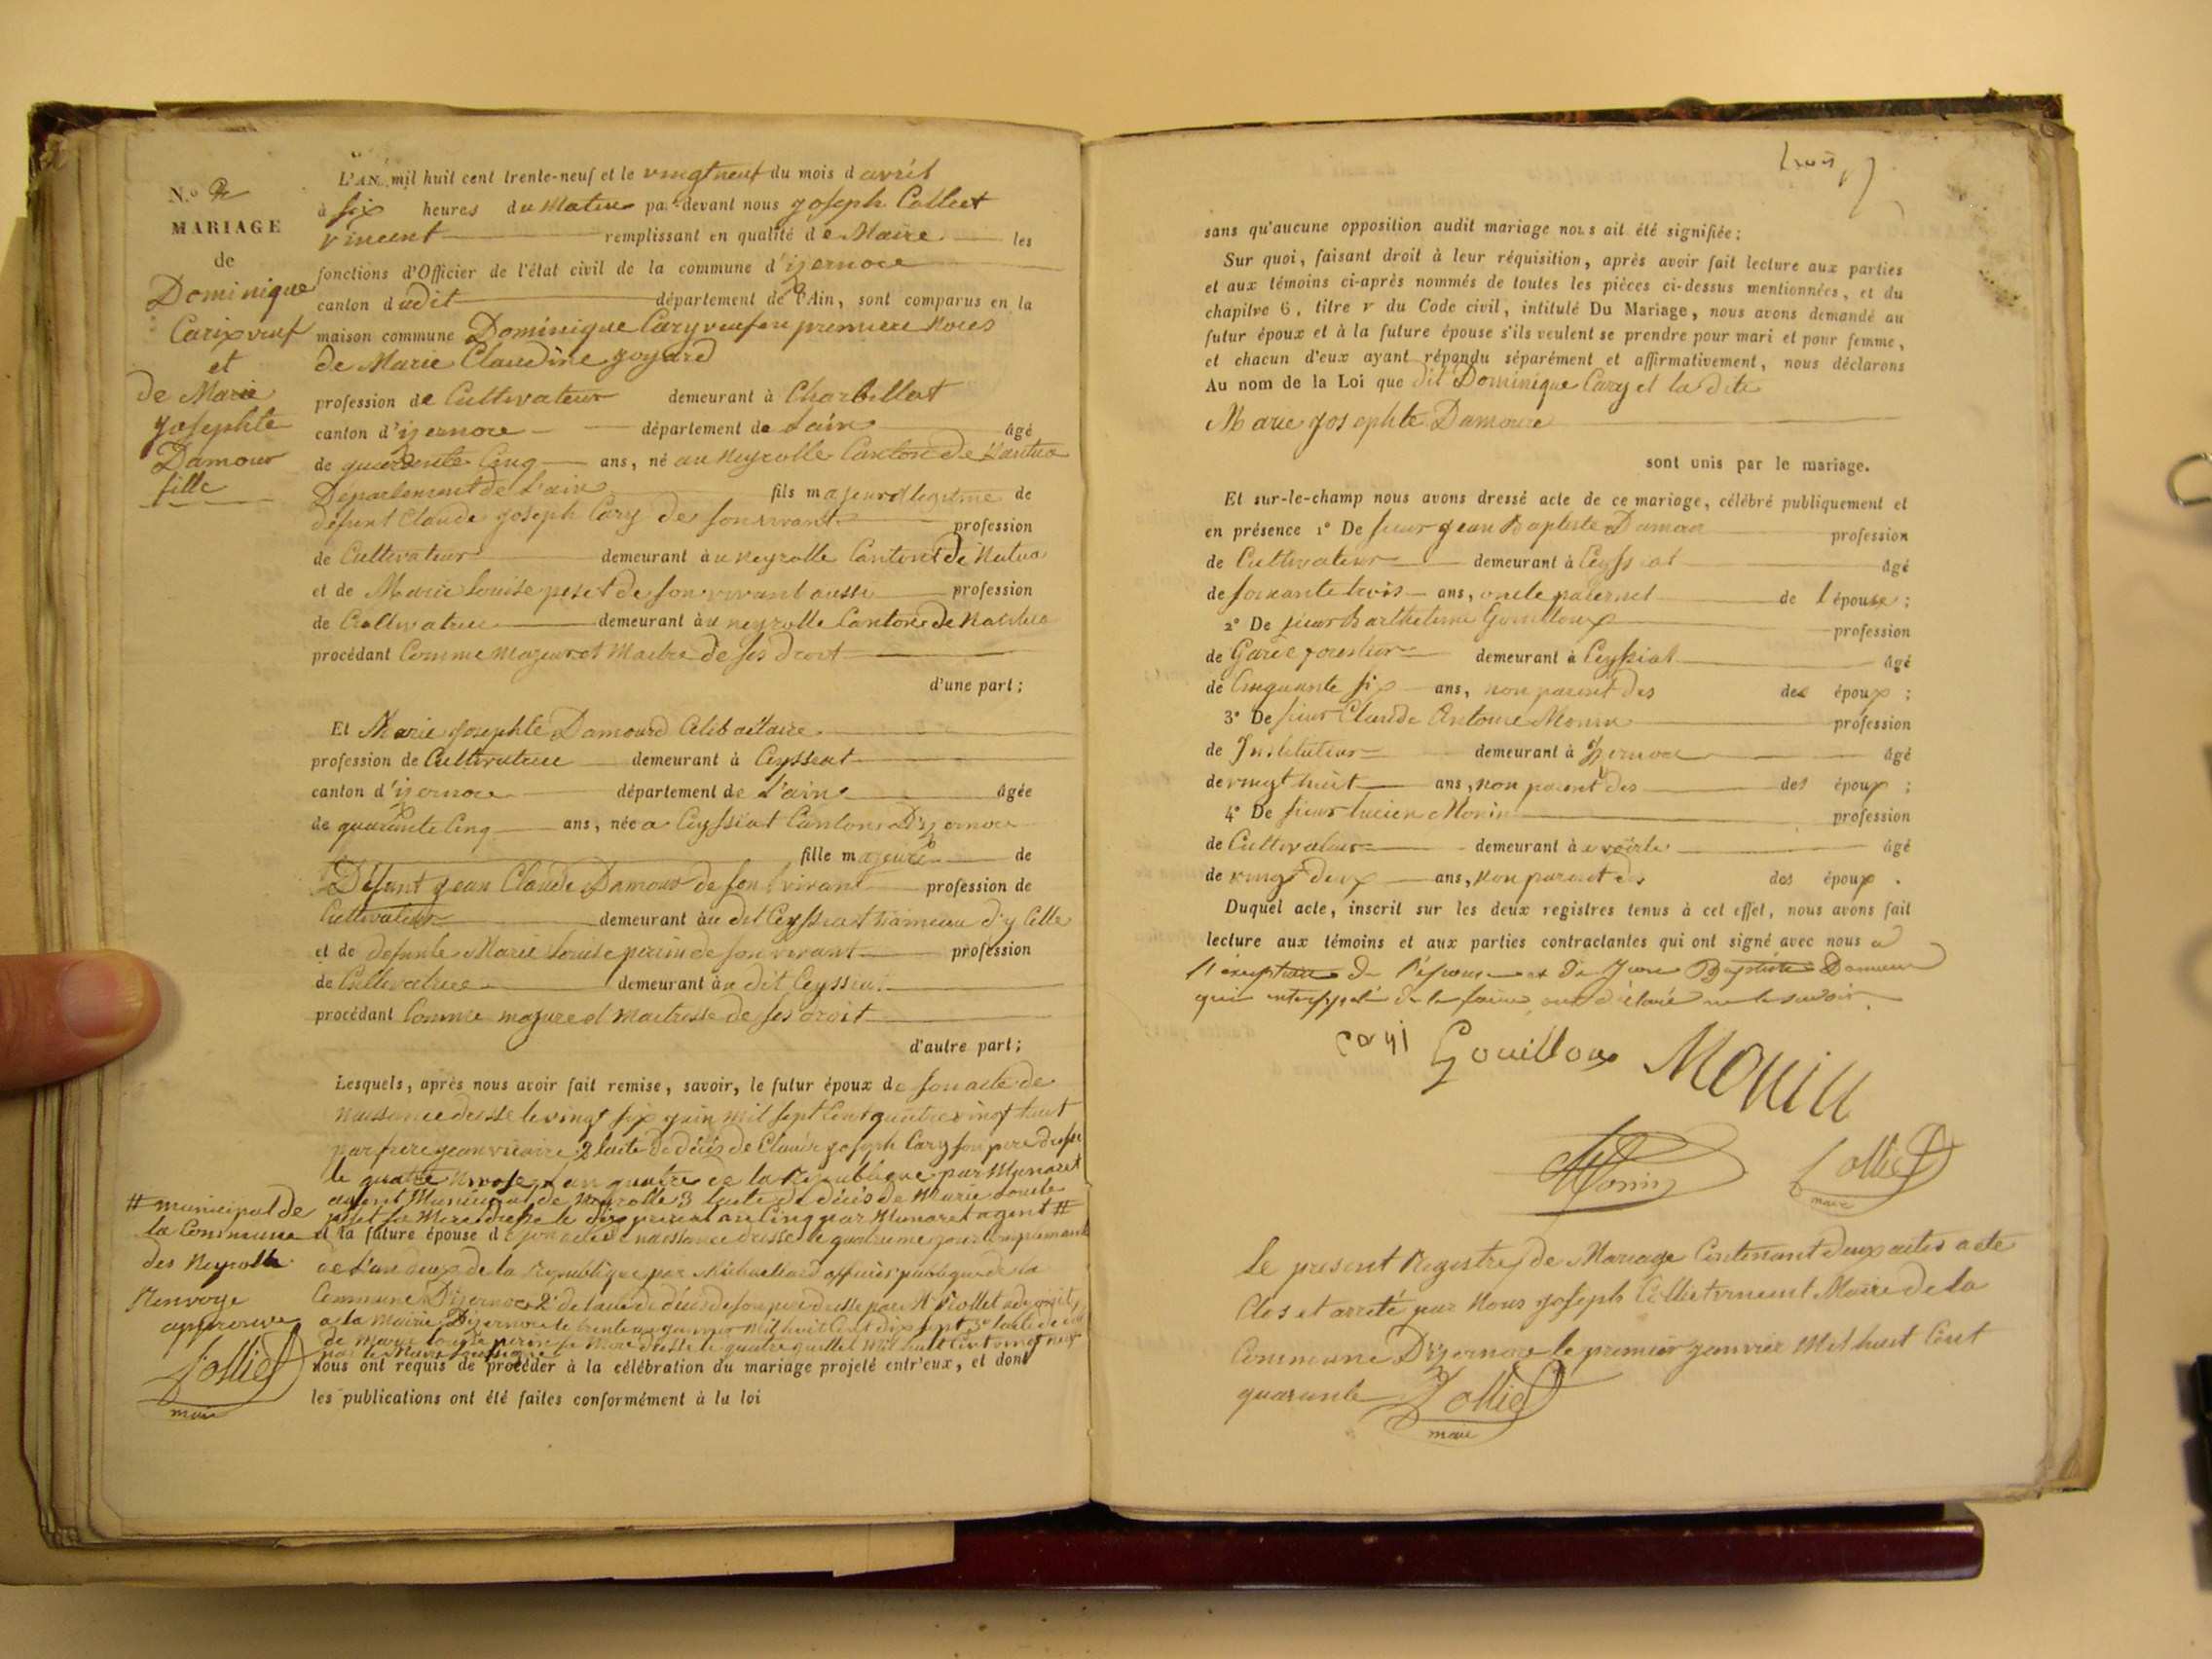 N.o 2
MARIAGE
de
Dominique
Carix veuf
et
de Marie
Josephte
Damour
fille
L'AN mil huit cent trente-neuf et le vingt neuf du mois d avril
à six heures du Matin par devant nous Joseph Colliet
vincent remplissant en qualité de Maire les
fonctions d'Officier de l'état civil de la commune d'izernore
canton dudit département de l'Ain, sont comparus en la
maison commune Dominique Cary veuf en premiere Noces
de Marie Claudine goyard
profession de Cultivateur demeurant à Charbillat
canton d'izernore département de L'ain âgé
de quarente Cinq ans, né au Neyrolle Canton de Nantua
Département de L'ain fils majeur et legitime de
défunt Claude Joseph Cary de son vivant profession
de Cultivateur demeurant au Neyrolle Canton de Nantua
et de Marie Louise peset de son vivant aussi profession
de Cultivatrice demeurant au neyrolle Canton de Nantua
procédant Comme Majeur et Maitre de ses droit
d'une part ;
Et Marie Josephte Damourd Celibataire
profession de Cultivatrice demeurant à Ceyssiat
canton d'izernore département de L'ain âgée
de quarante Cinq ans, née a Ceyssiat Canton D'izernore
fille majeure de
Défunt Jean Claude Damour de son vivant profession de
Cultivateur demeurant au dit Ceyssiat hameau d'y Celle
et de defunte Marie Louise perrin de son vivant profession
de Cultivatrice demeurant au dit Ceyssiat
procédant Comme majure et maitresse de ses droit
d'autre part ;
Lesquels, après nous avoir fait remise, savoir, le futur époux de son acte de
naissance dressé le vingt six juin mil sept Cent quatre vingt huit
par frere jean vicaire 2 l'acte de décés de Claude Joseph Cary son pere dressé
le quatre Nivose l'an quatre de la République par Munaret
agent Municipal de Neyrolle 3 l'acte de décés de Marie Louise
peset sa Mere dressé le dix prerial an Cinq par Munaret agent #
# municipal de
la Commune
des Neyrolle
Renvoye
approuvé
Colliet
maire
et la future épouse de son acte de naissance dressé le quatrieme jour Complementaire
de L'an deux de la Republique par officier publique de la
Commune D'izernore 2° de l'acte de décés de son pere dressé par Mr Rollet
a la Mairie D'izernore le trente janvier mil huit Cent dix sept 3° l'acte de
de Marie Louise perrin sa Mere dressé le quatre juillet Mil huit Cent vingt neuf
nous ont requis de procéder à la célébration du mariage projeté entr'eux, et dont
les publications ont été faites conformément à la loi
trois
sans qu'aucune opposition audit mariage nous ait été signifiée ;
Sur quoi, faisant droit à leur réquisition, après avoir fait lecture aux parties
et aux témoins ci-après nommés de toutes les pièces ci-dessus mentionnées, et du
chapitre 6, titre v du Code civil, intitulé Du Mariage, nous avons demandé au
futur époux et à la future épouse s'ils veulent se prendre pour mari et pour femme,
et chacun d'eux ayant répondu séparément et affirmativement, nous déclarons
Au nom de la Loi que dit Dominique Cary et la dite
Marie Josephte Damoure
sont unis par le mariage.
Et sur-le-champ nous avons dressé acte de ce mariage, célébré publiquement et
en présence 1° De sieur Jean Baptiste Damour profession
de Cultivateur demeurant à Ceyssiat âgé
de soixante trois ans, oncle paternel de l épouse ;
2° De sieur Barthelemi Gouilloux profession
de Garde forestier demeurant à Ceyssiat âgé
de Cinquante six ans, non parent des des époux ;
3° De sieur Claude Antoine Monin profession
de Instituteur demeurant à Izernore âgé
de vingt huit ans, non parent des des époux ;
4° De sieur Lucien Monin profession
de Cultivateur demeurant à voërle âgé
de vingt deux ans, non parent des des époux .
Duquel acte, inscrit sur les deux registres tenus à cet effet, nous avons fait
lecture aux témoins et aux parties contractantes qui ont signé avec nous a
l'exception de l'épouse et de Jean Baptiste Damour
qui interppelé de le faire ont déclaré ne le savoir
cary Gouilloux Monin
Monin Colliet
maire
Le present Registre de Mariage Contenant deux actes acte
Clos et arreté par Nous Joseph Colliet vincent Maire de la
Commune D'izernore le premier janvier Mil huit Cent
quarante Colliet
maire